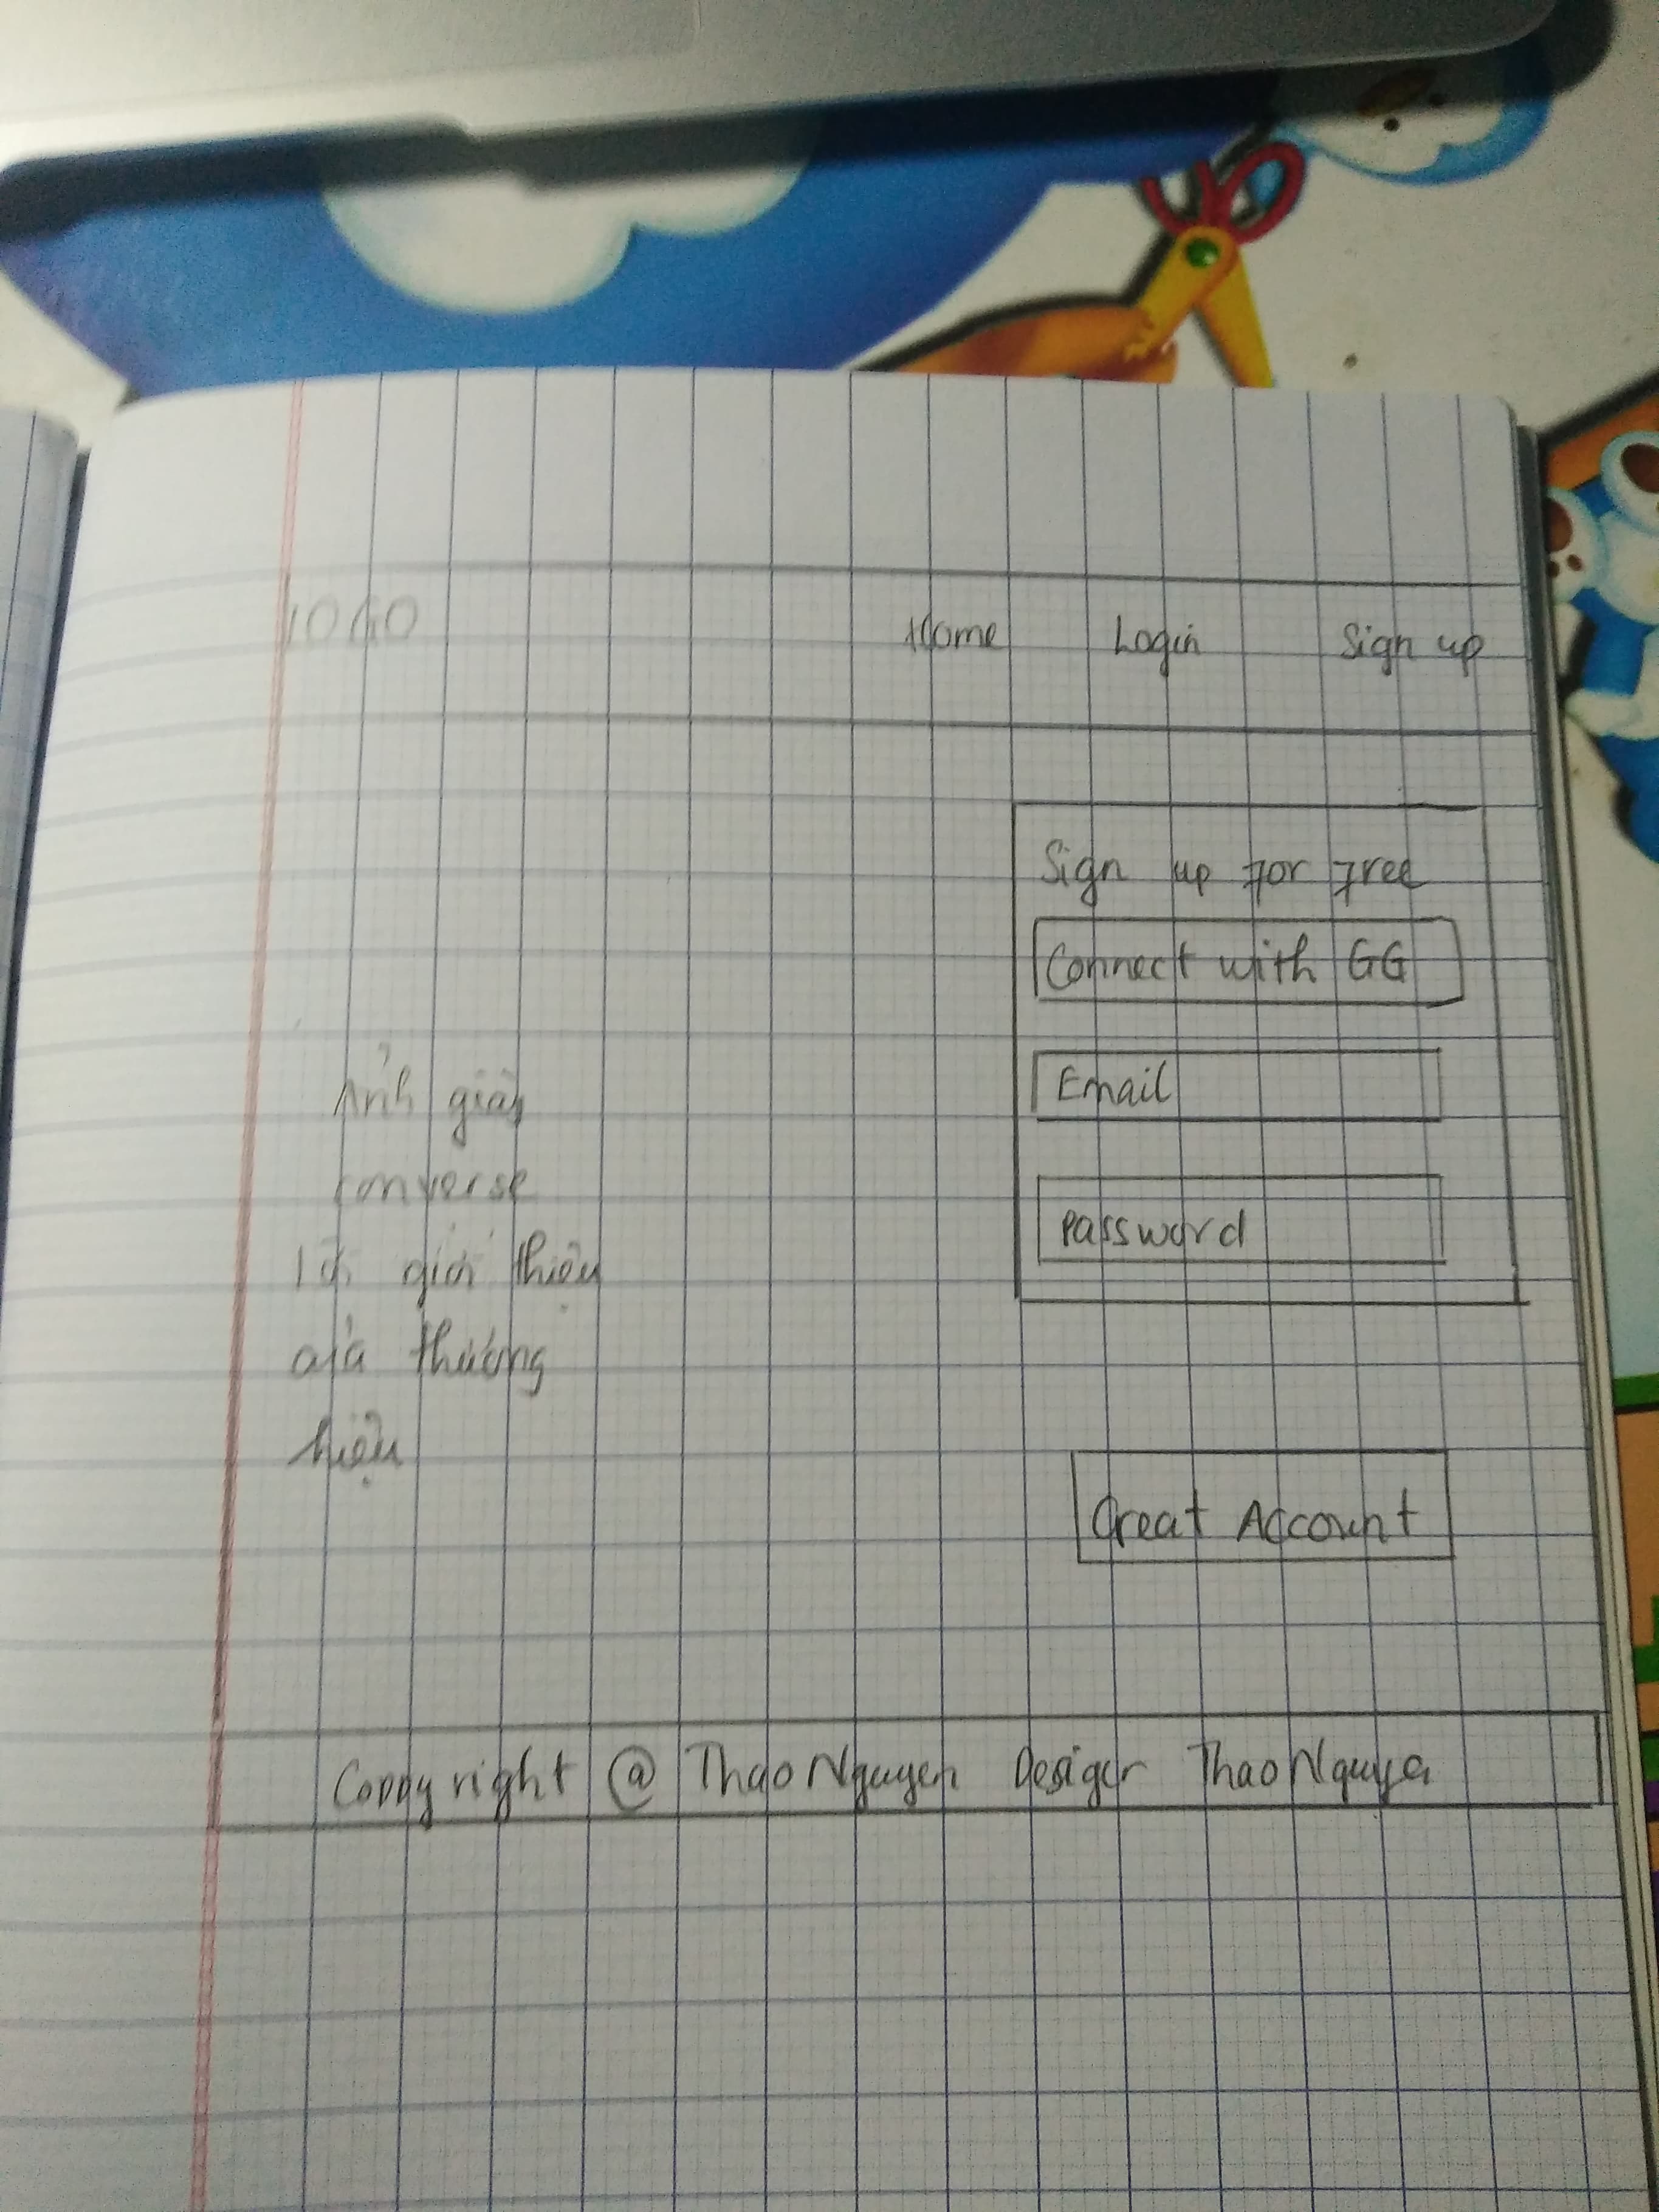 LOGO Home Login Sign up
Sign up for free
Connect with GG
Email
Ảnh giày
converse
Password
lời giới thiệu
của thương
hiệu
Creat Account
Coppy right @ ThaoNguyen Desiger ThaoNguye